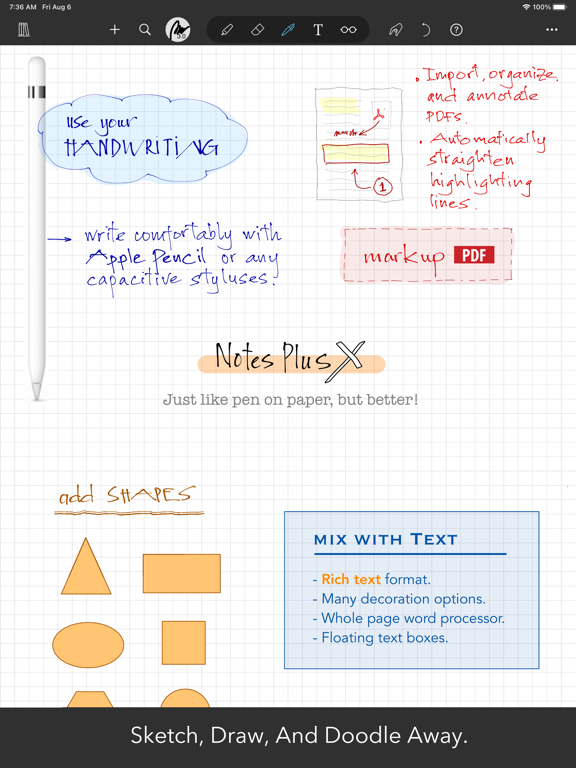 7:36 AM Fri Aug 6
100%
3.0
T
use your
HANDWRITING
→ write comfortably with
Apple Pencil or any
capacitive styluses.
1
• Import, organize,
and annotate
PDFs.
• Automatically
straighten
highlighting
lines.
markup PDF
Notes Plus X
Just like pen on paper, but better!
add SHAPES
MIX WITH TEXT
- Rich text format.
- Many decoration options.
- Whole page word processor.
- Floating text boxes.
Sketch, Draw, And Doodle Away.